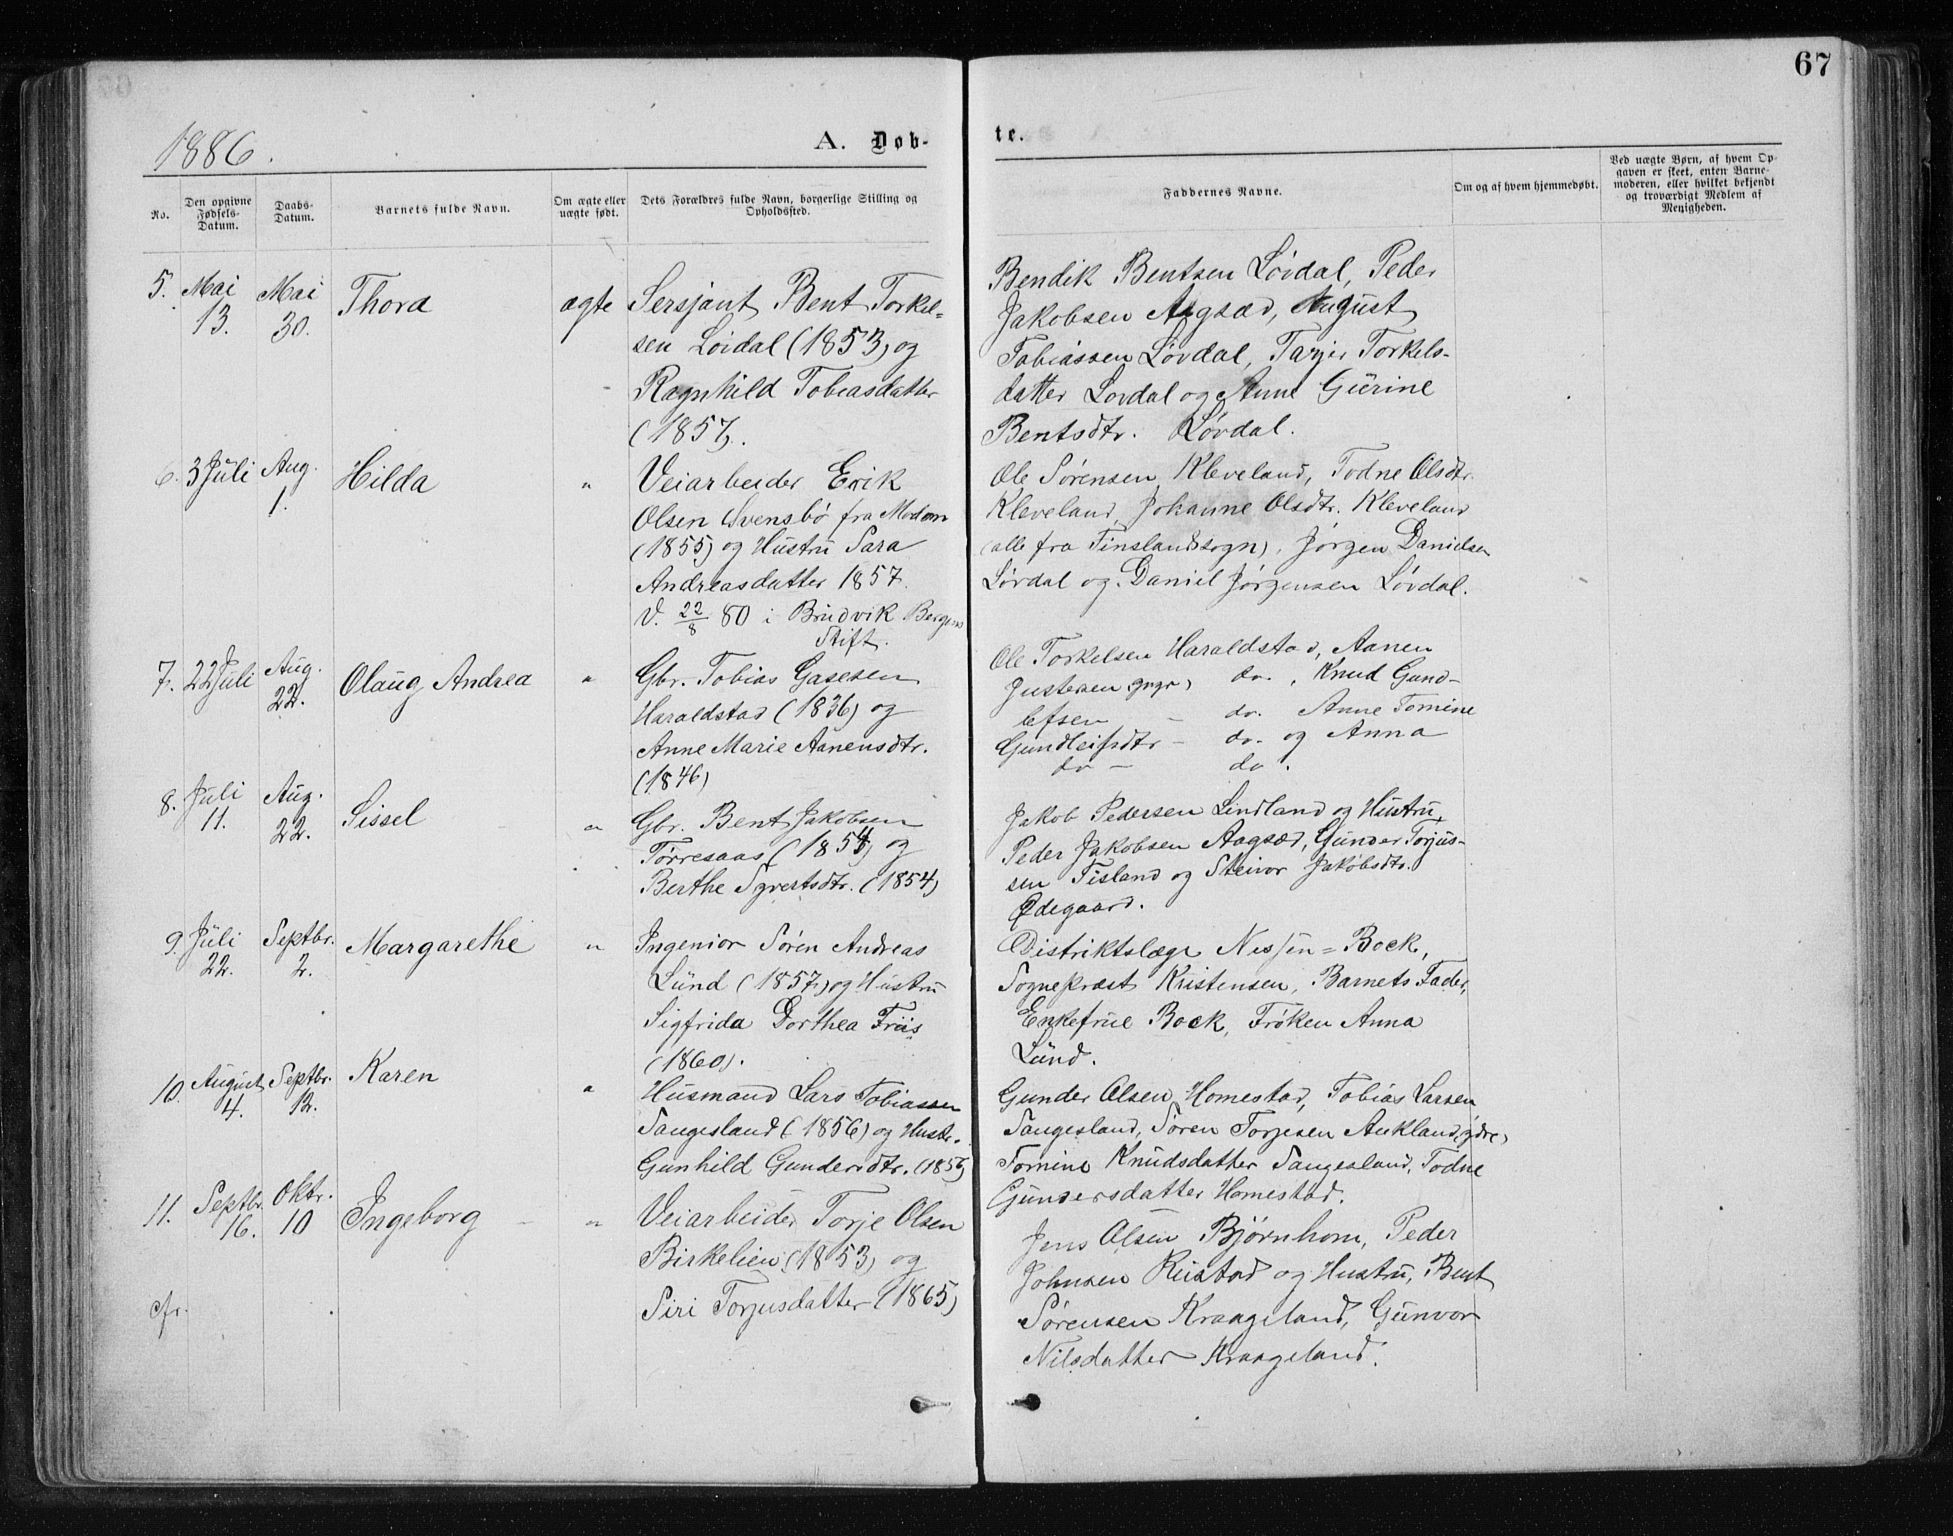 67
1886.
A. Døb-
te.
No.
Den opgivne Fødsels-Datum.
Daabs-Datum.
Barnets fulde Navn.
Om ægte eller uægte født.
Dets Forældres fulde Navn, borgerlige Stilling og Opholdssted.
Faddernes Navne.
Om og af hvem hjemmedøbt.
Ved uægte Børn, af hvem Opgaven er skeet, enten Barnemoderen, eller hvilket bekjendt og troværdigt Medlem af Menigheden.
5. Mai 13. Mai 30. Thora ægte
Sersjant Bent Torkel-
sen Løvdal (1853) og
Ragnhild Tobiasdatter
(1857).
Bendik Bentsen Løvdal, Peder
Jakobsen Aagsæd, August
Tobiassen Løvdal, Tarjer Torkels-
datter Lovdal og Anne Gurine
Bentsdtr. Løvdal.
6. 3 Juli Aug. 1. Hilda "
Veiarbeider Erik
Olsen Svensbö fra Modom
(1855) og Hustru Sara
Andreasdatter 1857.
V. 22/8 80 i Brudvik Bergens
Stift.
Ole Sørensen Kleveland, Todne Olsdtr.
Kleveland, Johanne Olsdtr. Kleveland
(alle fra Finslandssogn), Jørgen Danielsen
Lövdal og Daniel Jørgensen Løvdal.
7. 22 Juli Aug. 22. Olaug Andrea "
Gbr. Tobias Gasesen
Haraldstad (1836) og
Anne Marie Aanensdtr.
(1846)
Ole Torkelsen Haraldstad, Aanen
Justesen (yngr) do., Knud Gund-
lefsen - do. Anne Tomine
Gundleifsdtr - do. og Anna
do - do.
8. Juli 11. Aug. 22. Sissel "
Gbr. Bent Jakobsen
Tørresaas (1854) og
Berthe Syvertsdtr. (1854)
Jakob Pedersen Lindland og Hustru,
Peder Jakobsen Aagsæd, Gunder Torjus-
sen Fisland og Steinor Jakobsdtr.
Ødegaard.
9. Juli 22. Septbr. 2. Margarethe "
Ingeniør Sören Andreas
Lund (1857) og Hustru
Sigfrida Dorthea Friis
(1860).
Distriktslæge Nissen = Bock,
Sognepræst Kristensen, Barnets Fader,
Enkefrue Bock, Frøken Anna
Lund.
10. August 4. Septbr. 12. Karen "
Husmand Lars Tobiassen
Saugesland (1856) og Hustr.
Gunhild Gundersdtr. (1856)
Gunder Olsen Homestad, Tobias Larsen
Saugesland, Søren Torjesen Aukland,
Tomine Knudsdatter Saugesland, Todne
Gundersdatter Homestad.
11. Septbr. 16. Oktr. 10 Ingeborg "
Veiarbeider Torje Olsen
Birkelien (1853) og
Siri Torjusdatter (1865)
Jens Olsen Bjørnhom, Peder
Johnsen Reistad og Hustru, Bent
Sørensen Kraageland, Gunvor
Nilsdatter Kraageland.
cfr.